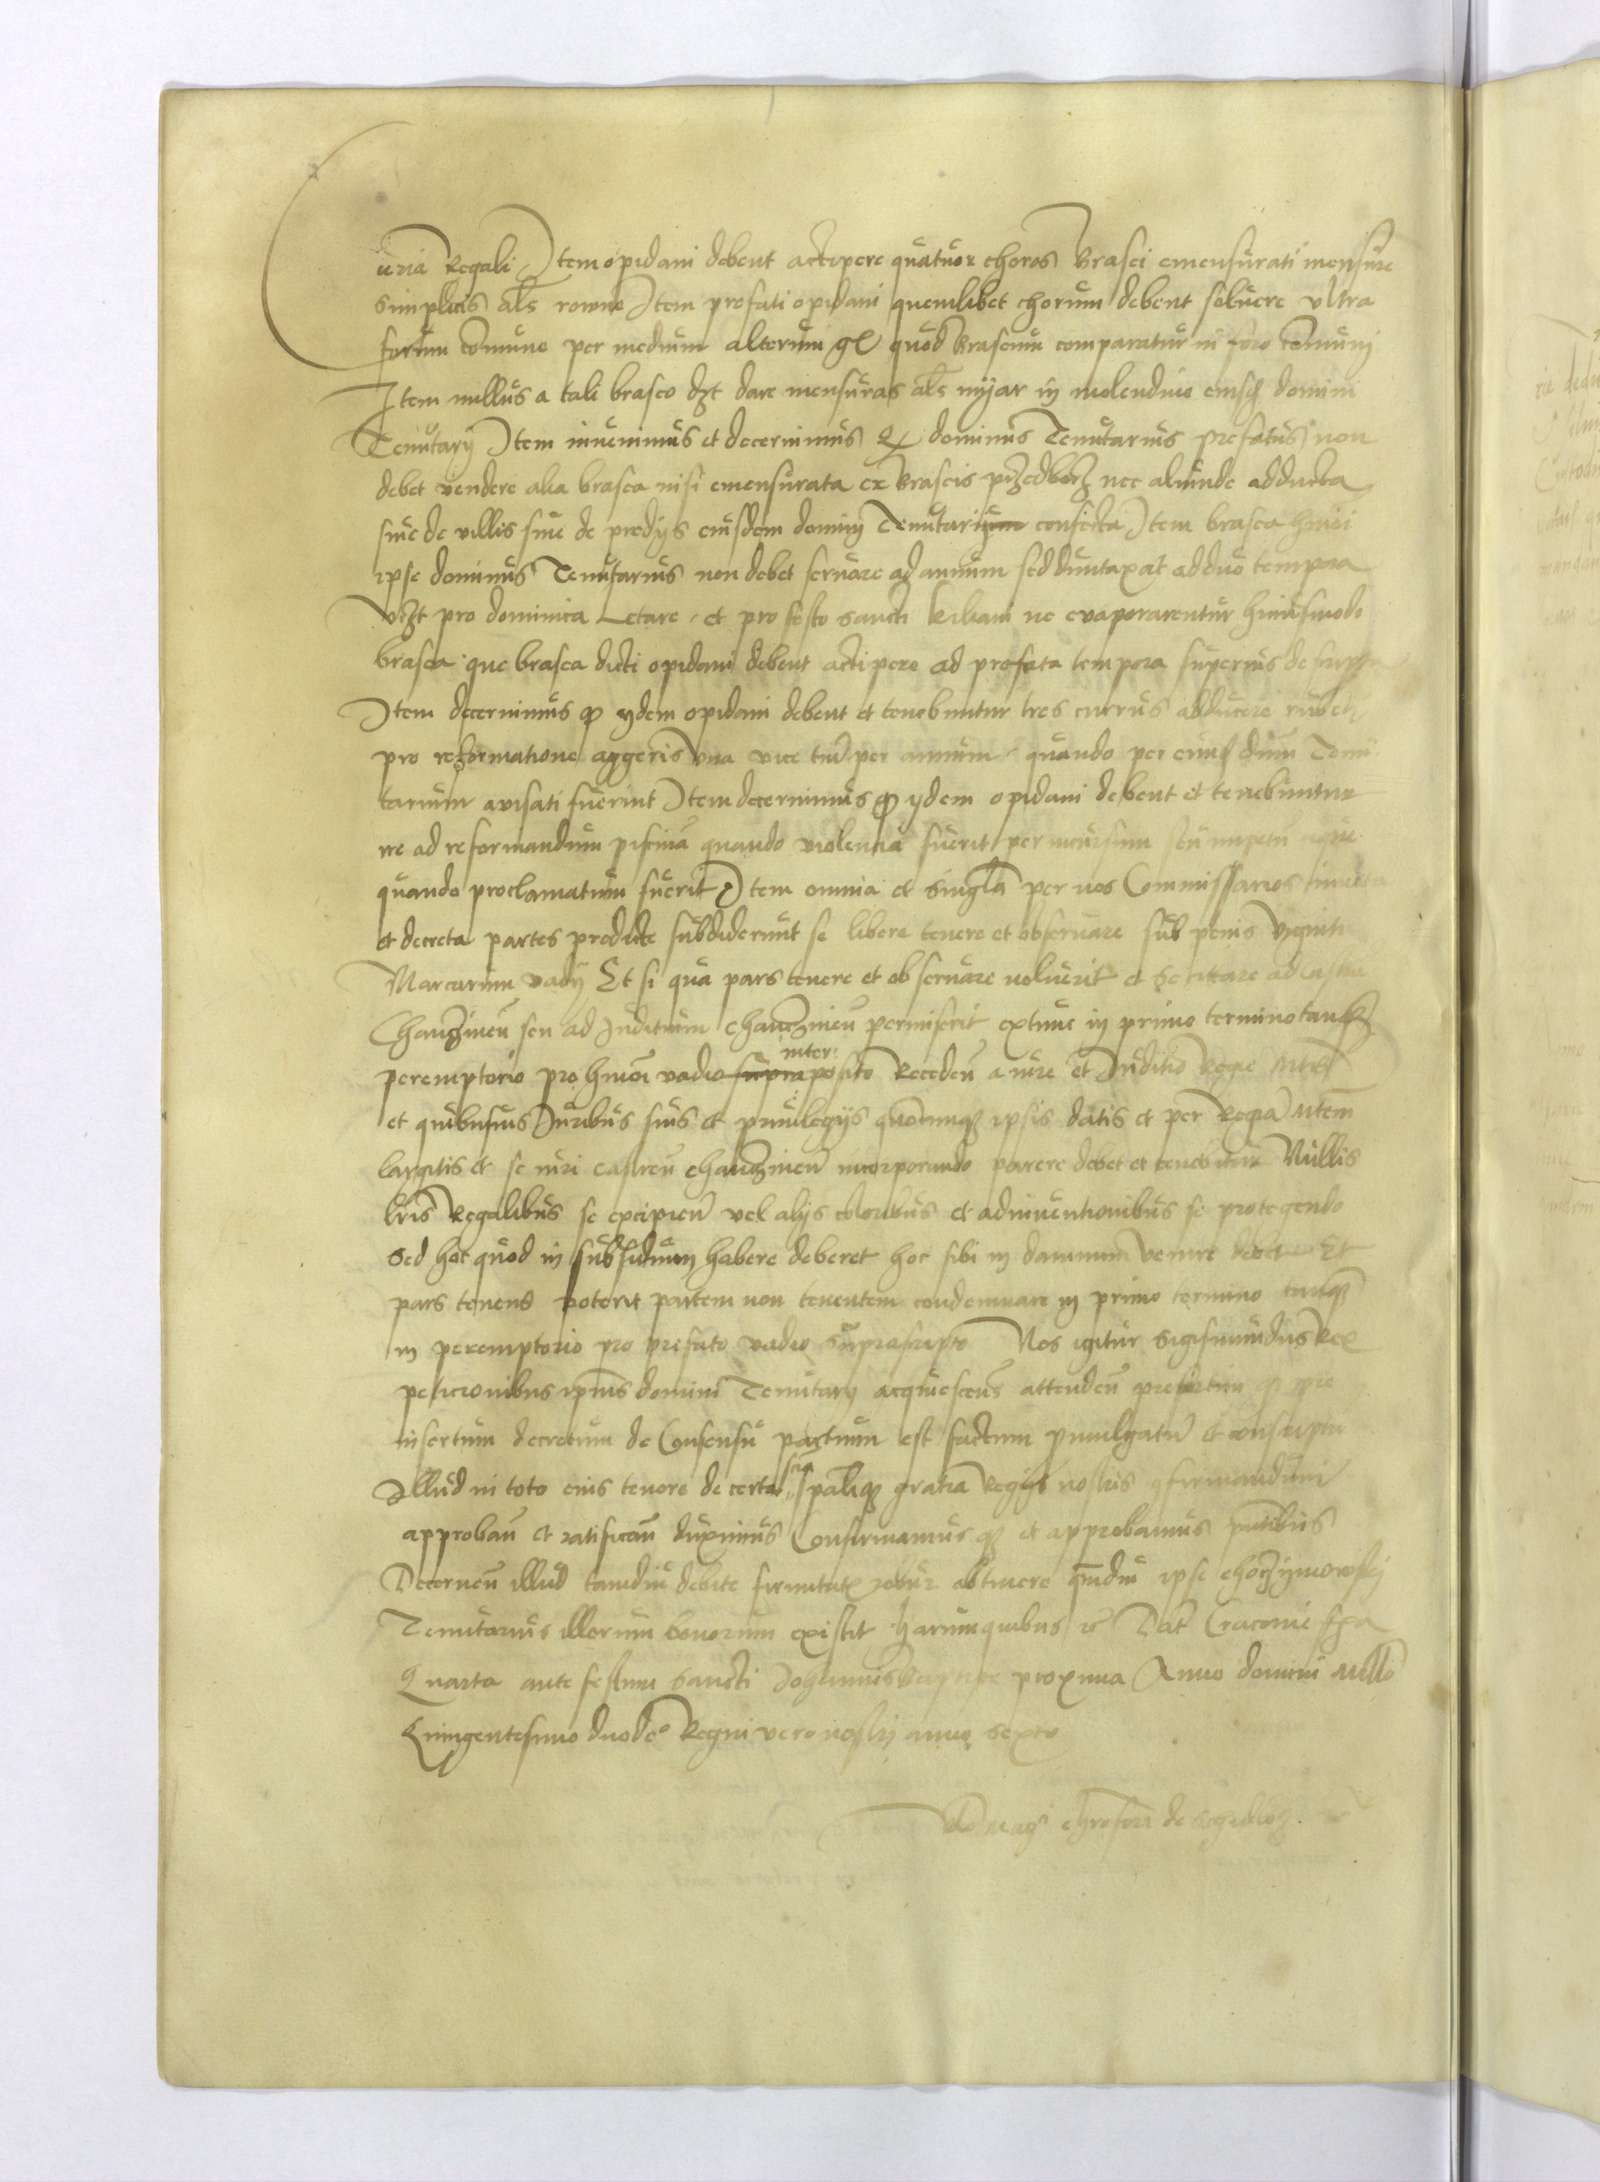 Curia Regali Item opidani debent accipere quatuor choros brasci emensurati mensure
simplicis als rowne Item prefati opidani quemlibet chorum debent soluere vltra
forum comune per medium alterum gr quod brasceum comparatur in foro comuni
Item nullus a tali brasco dzt dare mensuras als myar in molendino eiusdem domini
Tenutarij Item inuenimus et decernimus q dominus Tenutarius prefatus non
debet vendere alia brasca nisi emensurata ex brascis przedborz nec aliunde adducta
siue de villis siue de predijs eiusdem domini Tenutarium confecta Item brasca hmoi
ipse dominus Tenutarius non debet seruare ad annum sed duntaxat ad duo tempora
vczt pro dominica Letare et pro festo sancti kiliani ne evaporarentur huiusmodi
brasca que brasca dicti opidani debent accipere ad prefata tempora superius descripta
Item decernimus q ydem opidani debent et tenebuntur tres currus adducere
pro reformatione aggeris vna vice tm per annum quando per eund dnum Tenu
tarium avisati fuerint Item decernimus q ydem opidani debent et tenebuntur
ire ad reformandum piscina quando violencia fuerit per incursum seu impetu aque
quando proclamatum fuerit Item omnia et singula per nos Commissarios inuenta
et decreta partes predicte subdiderunt se libere tenere et obseruare sub penis viginti
Marcarum vadij Et si qua pars tenere et obseruare noluerit et se cittare ad castra
Chanczinen seu ad Juditium chanczinen permiserit extunc in primo termino tanq
peremptorio pro hmoi vadio supra inter posito Receden a iure et Juditio Regie Mtis
et quibusuis Juribus suis et priuilegijs quocunq ipsis datis et per Regia Mtem
largitis et se iuri castren chanczinen incorporando parere debet et tenebitur Nullis
lris Regalibus se excipien vel alijs coloribus et adinuentionibus se protegendo
Sed hoc quod in subsidium habere deberet hoc sibi in damnum venire debet Et
pars tenens poterit partem non tenentem condemnare in primo termino tanq
in peremptorio pro prefato vadio suprascripto Nos igitur Sigismundus Rex
peticionibus ipius domini Tenutarij acquiescens attenden presertim q pre
insertum decretum de Consensu partium est factum promulgatu et conscriptu
Illud in toto eius tenore de certa scia spaliq gratia Regijs nostris confirmandum
approban et ratifican duximus Confirmamusq et approbamus pntibus
Decernen illud tamdiu debite firmitatis robur obtinere qmdiu ipse chorzymowsky
Tenutarius illorum bonorum existit harum quibus rc Dat Cracouie fra
Quarta ante festum sancti Johannis Baptiste proxima Anno domini Millo
Quingentesimo duode Regni vero nostri anno Sexto